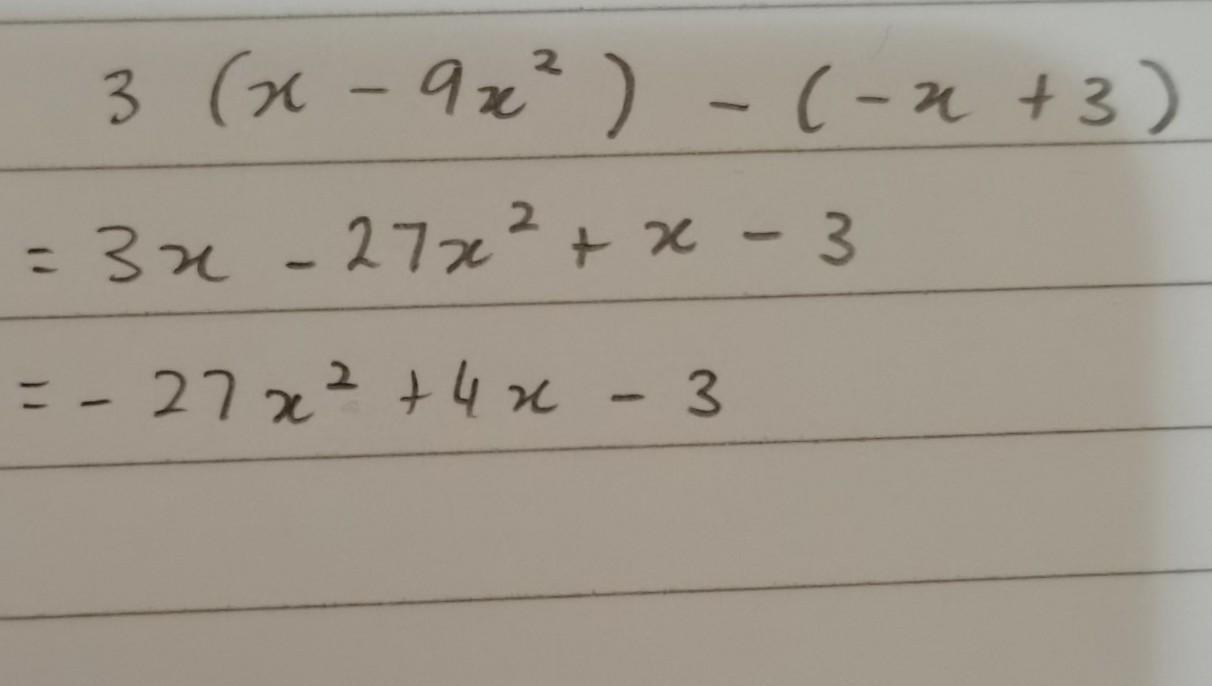 3 (x - 9x²) - (-x + 3)
= 3x - 27x² + x - 3
= - 27x² + 4x - 3